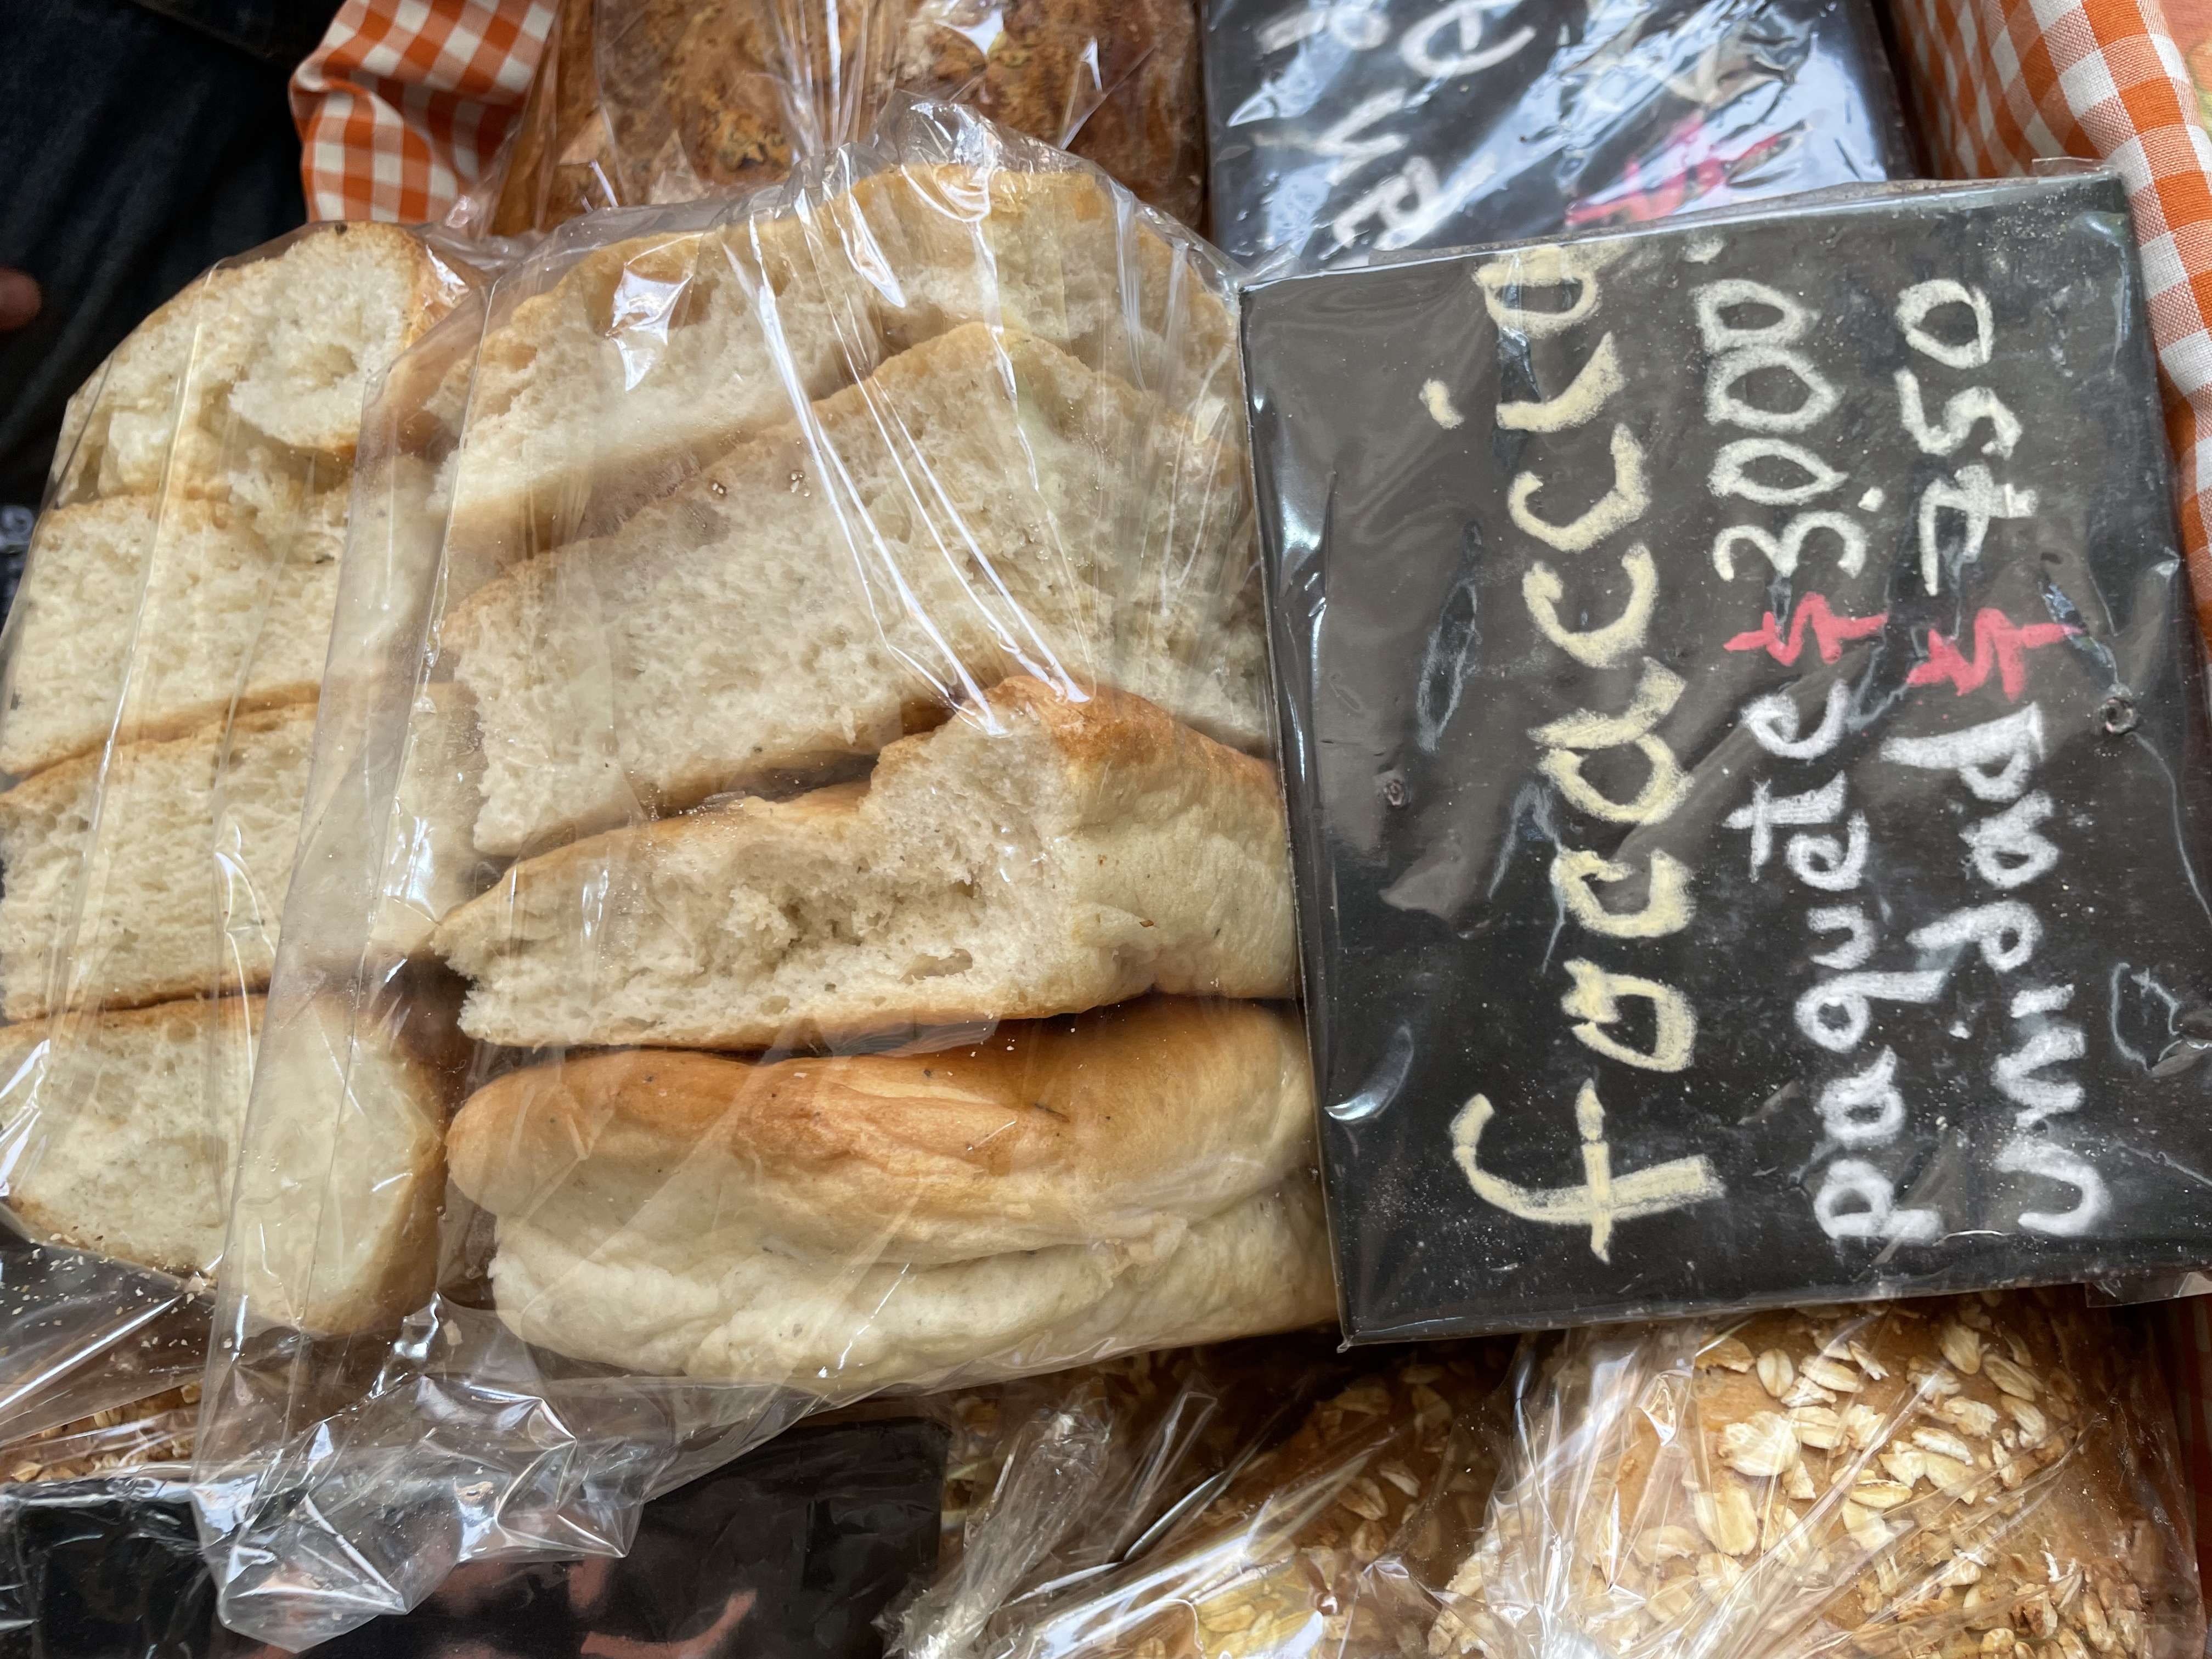 focaccia
paquete $ 3.000
unidad $ 750